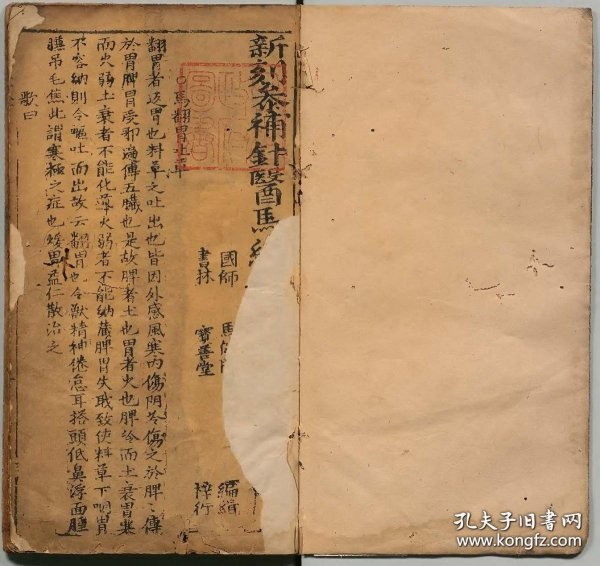 新刻参補針醫馬經
國師 馬師
編緝
書林 寶善堂
梓行
〇馬翻胃吐草
翻胃者返胃也料草之吐出也皆因外感風寒內傷陰冷傷之於脾〻傳
於胃脾胃受邪遍傳五臟也是故脾者土也胃者火也脾冷而土衰胃寒
而火弱土衰者不能化草火弱者不能納藏脾胃失職致使料草下咽胃
不容納則令嘔吐而出故云翻胃也令獸精神倦怠耳搭頭低鼻浮面腫
臕吊毛焦此謂寒極之症也煖胃益仁散治之
歌曰
孔夫子旧书网
www.kongfz.com